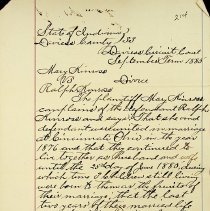 State of Indiana
Daviess County } SS
Daviess Circuit Court
September Term 1885
Mary Kinross
vs Divorce
Ralph Kinross
The plaintiff Mary Kinross
complains of the defendant Ralph
Kinross and says that she and
defendant were united in marriage
at Cincinnati Ohio in the year
1876 and that they continued to
live together as husband and wife
until the day of June 1883, during
which time 2 children still living
were born to them as the fruits of
their marriage, that the last
two years of their married life